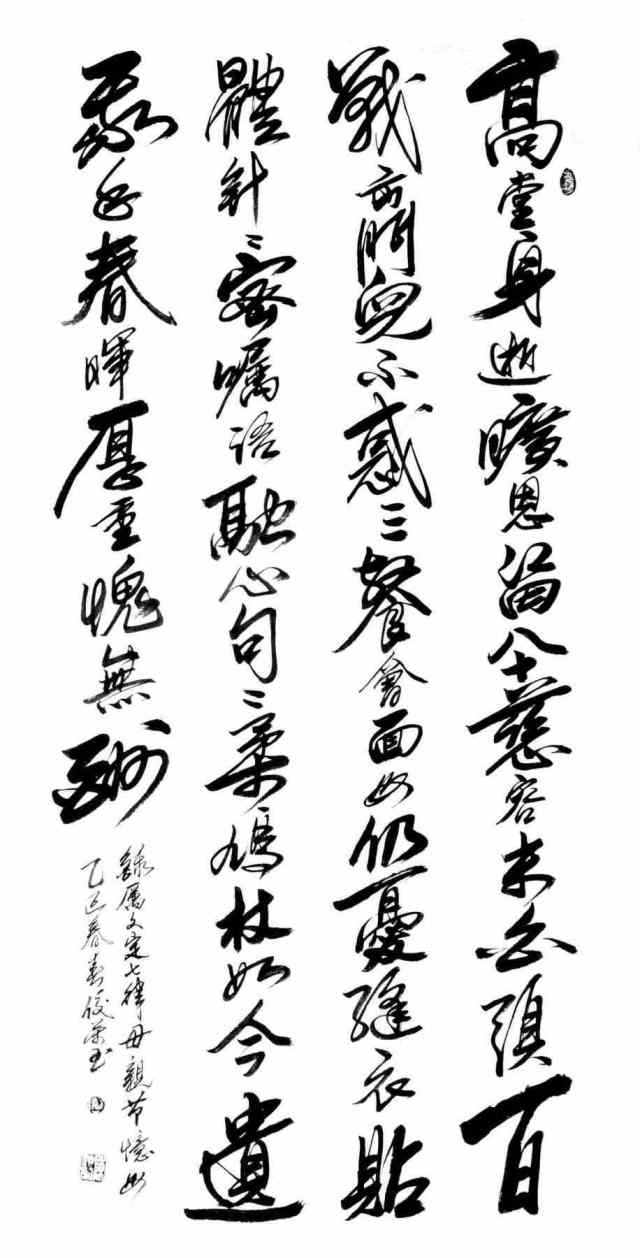 高堂身逝曠恩留八十慈容未白頭百
戰兒不惑三餐會面母仍憂縫衣貼
體針〻密囑語融心句〻柔鳩杖如今遺
春暉厚重愧無酬
錄厲文定七律母親節憶母
乙巳春